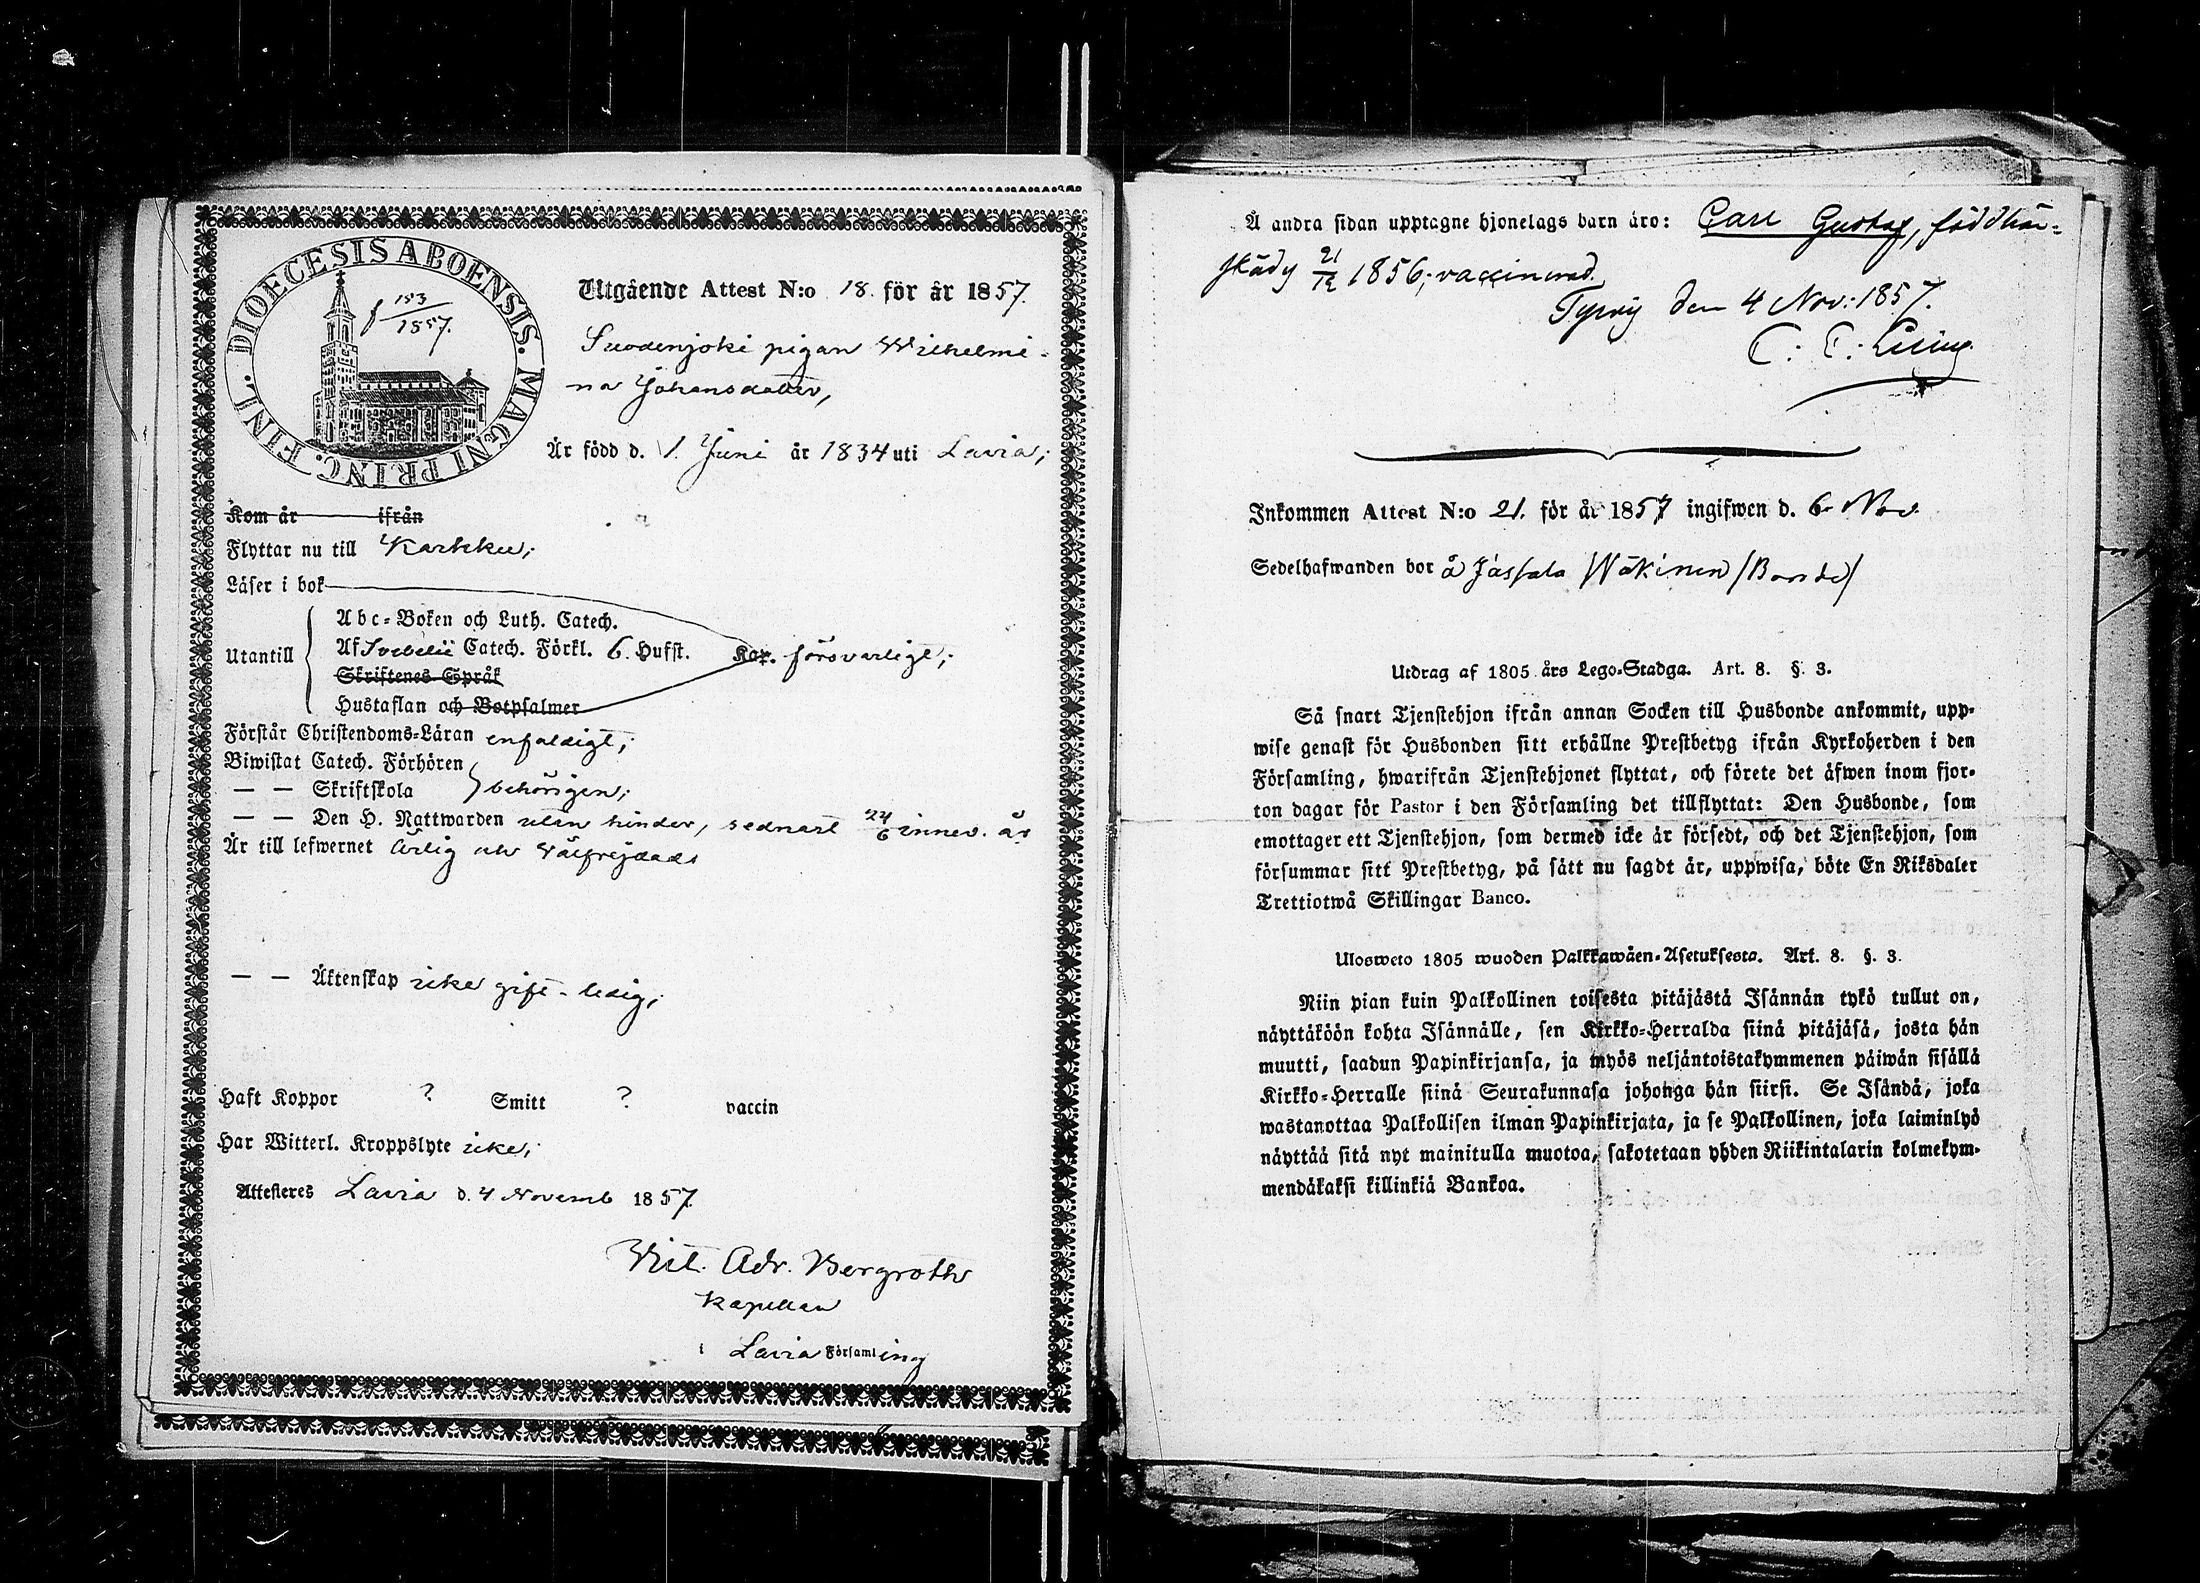 DIOECESIS ABOENSIS. MAGNI PRINC. FINL.
f 183/1857.
Utgående Attest N:o 18. för år 1857.
Suodenjoki pigan Wilhelmi-
na Johansdotter,
Är född d. 1. Juni år 1834 uti Lavia;
Kom år ifrån
Flyttar nu till Karkku;
Läser i bok
Abc-Boken och Luth. Catech.
Utantill Af Svebelii Catech. Förkl. 6. Hufst. Kap. försvarligt;
Skriftenes Språk
Hustaflan och Botpsalmer
Förstår Christendoms-Läran enfaldigt;
Biwistat Catech. Förhören
— — Skriftskola } behörigen;
— — Den H. Nattwarden utan hinder, sednast 24/6 innev. år
Är till lefwernet ärlig och välfrejdad;
— — Äktenskap icke gift - ledig;
Haft Koppor ? Smitt ? vaccin
Har Witterl. Kroppslyte icke;
Attesteres Lavia d. 4 Novemb 1857.
Vict. Adr. Bergroth
Kapellan
i Lavia Församling
Å andra sidan upptagne hjonelags barn äro: Carl Gustaf, född här-
städs 21/12 1856; vaccinerad.
Tyrvis den 4 Nov: 1857.
C: E:
Inkommen Attest N:o 21. för år 1857 ingifwen d. 6 Nov.
Sedelhafwanden bor å Jassala Wäkinen /Bonde/
Utdrag af 1805 års Lego-Stadga. Art. 8. §. 3.
Så snart Tjenstehjon ifrån annan Socken till Husbonde ankommit, upp-
wise genast för Husbonden sitt erhållne Prestbetyg ifrån Kyrkoherden i den
Församling, hwarifrån Tjenstehjonet flyttat, och förete det äfwen inom fjor-
ton dagar för Pastor i den Församling det tillflyttat: Den Husbonde, som
emottager ett Tjenstehjon, som dermed icke är försedt, och det Tjenstehjon, som
försummar sitt Prestbetyg, på sätt nu sagdt är, uppwisa, böte En Riksdaler
Trettiotwå Skillingar Banco.
Ulosweto 1805 wuoden Palkkawäen-Asetuksesta. Art. 8. §. 3.
Niin pian kuin Palkollinen toisesta pitäjästä Isännän tykö tullut on,
näyttäköön kohta Isännälle, sen Kirkko-Herralda siinä pitäjäsä, josta hän
muutti, saadun Papinkirjansa, ja myös neljäntoistakymmenen päiwän sisällä
Kirkko-Herralle siinä Seurakunnasa johonga hän siirsi. Se Isändä, joka
wastanottaa Palkollisen ilman Papinkirjata, ja se Palkollinen, joka laiminlyö
näyttää sitä nyt mainitulla muotoa, sakotetaan yhden Riikintalarin kolmekym-
mendäkaksi killinkiä Bankoa.